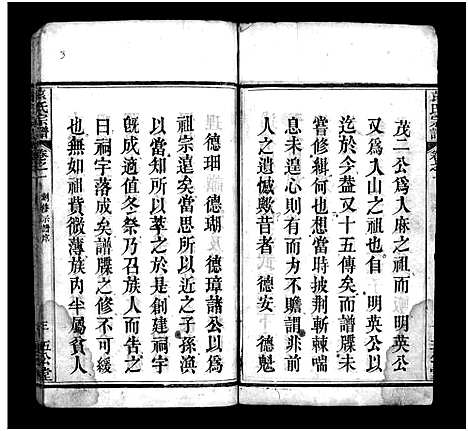 茂二公爲入麻之祖而　明英公
又爲入山之祖也　明英公以
迄於今葢又十五傳矣而譜牒未
嘗修緝何也想當時披荆斬棘喘
息未遑心則有志力不贍謂非前
人之遺憾歟昔者　德安　德魁
德珊　德瑚　德璋諸公以爲
祖宗遠矣當思所以近之子孫渙
矣當知所以萃之於是創建祠宇
既成適值冬祭乃召族人而告之
曰祠宇落成矣譜牒之修不可緩
也無如祖貲微薄族內半屬貧人
氏宗譜
卷之一
五公堂